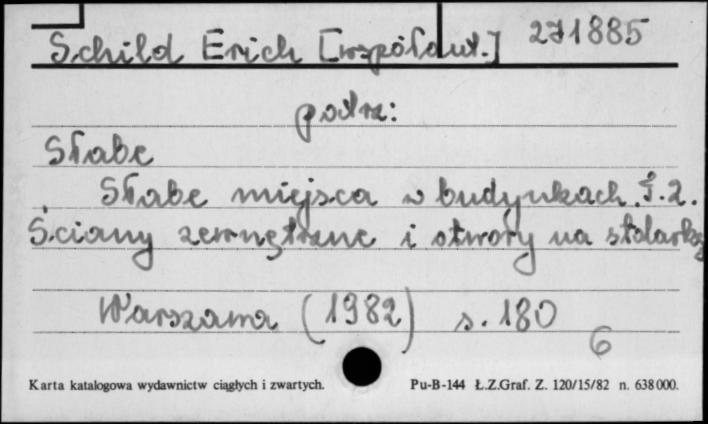 Schild Erich [współaut.] 271885
patrz:
Słabe
Słabe miejsca w budynkach. T. 2.
Ściany zewnętrzne i otwory na stolarkę
Warszawa (1982) s. 180
6
Karta katalogowa wydawnictw ciągłych i zwartych. Pu-B-144 Ł.Z.Graf. Z. 120/15/82 n. 638000.